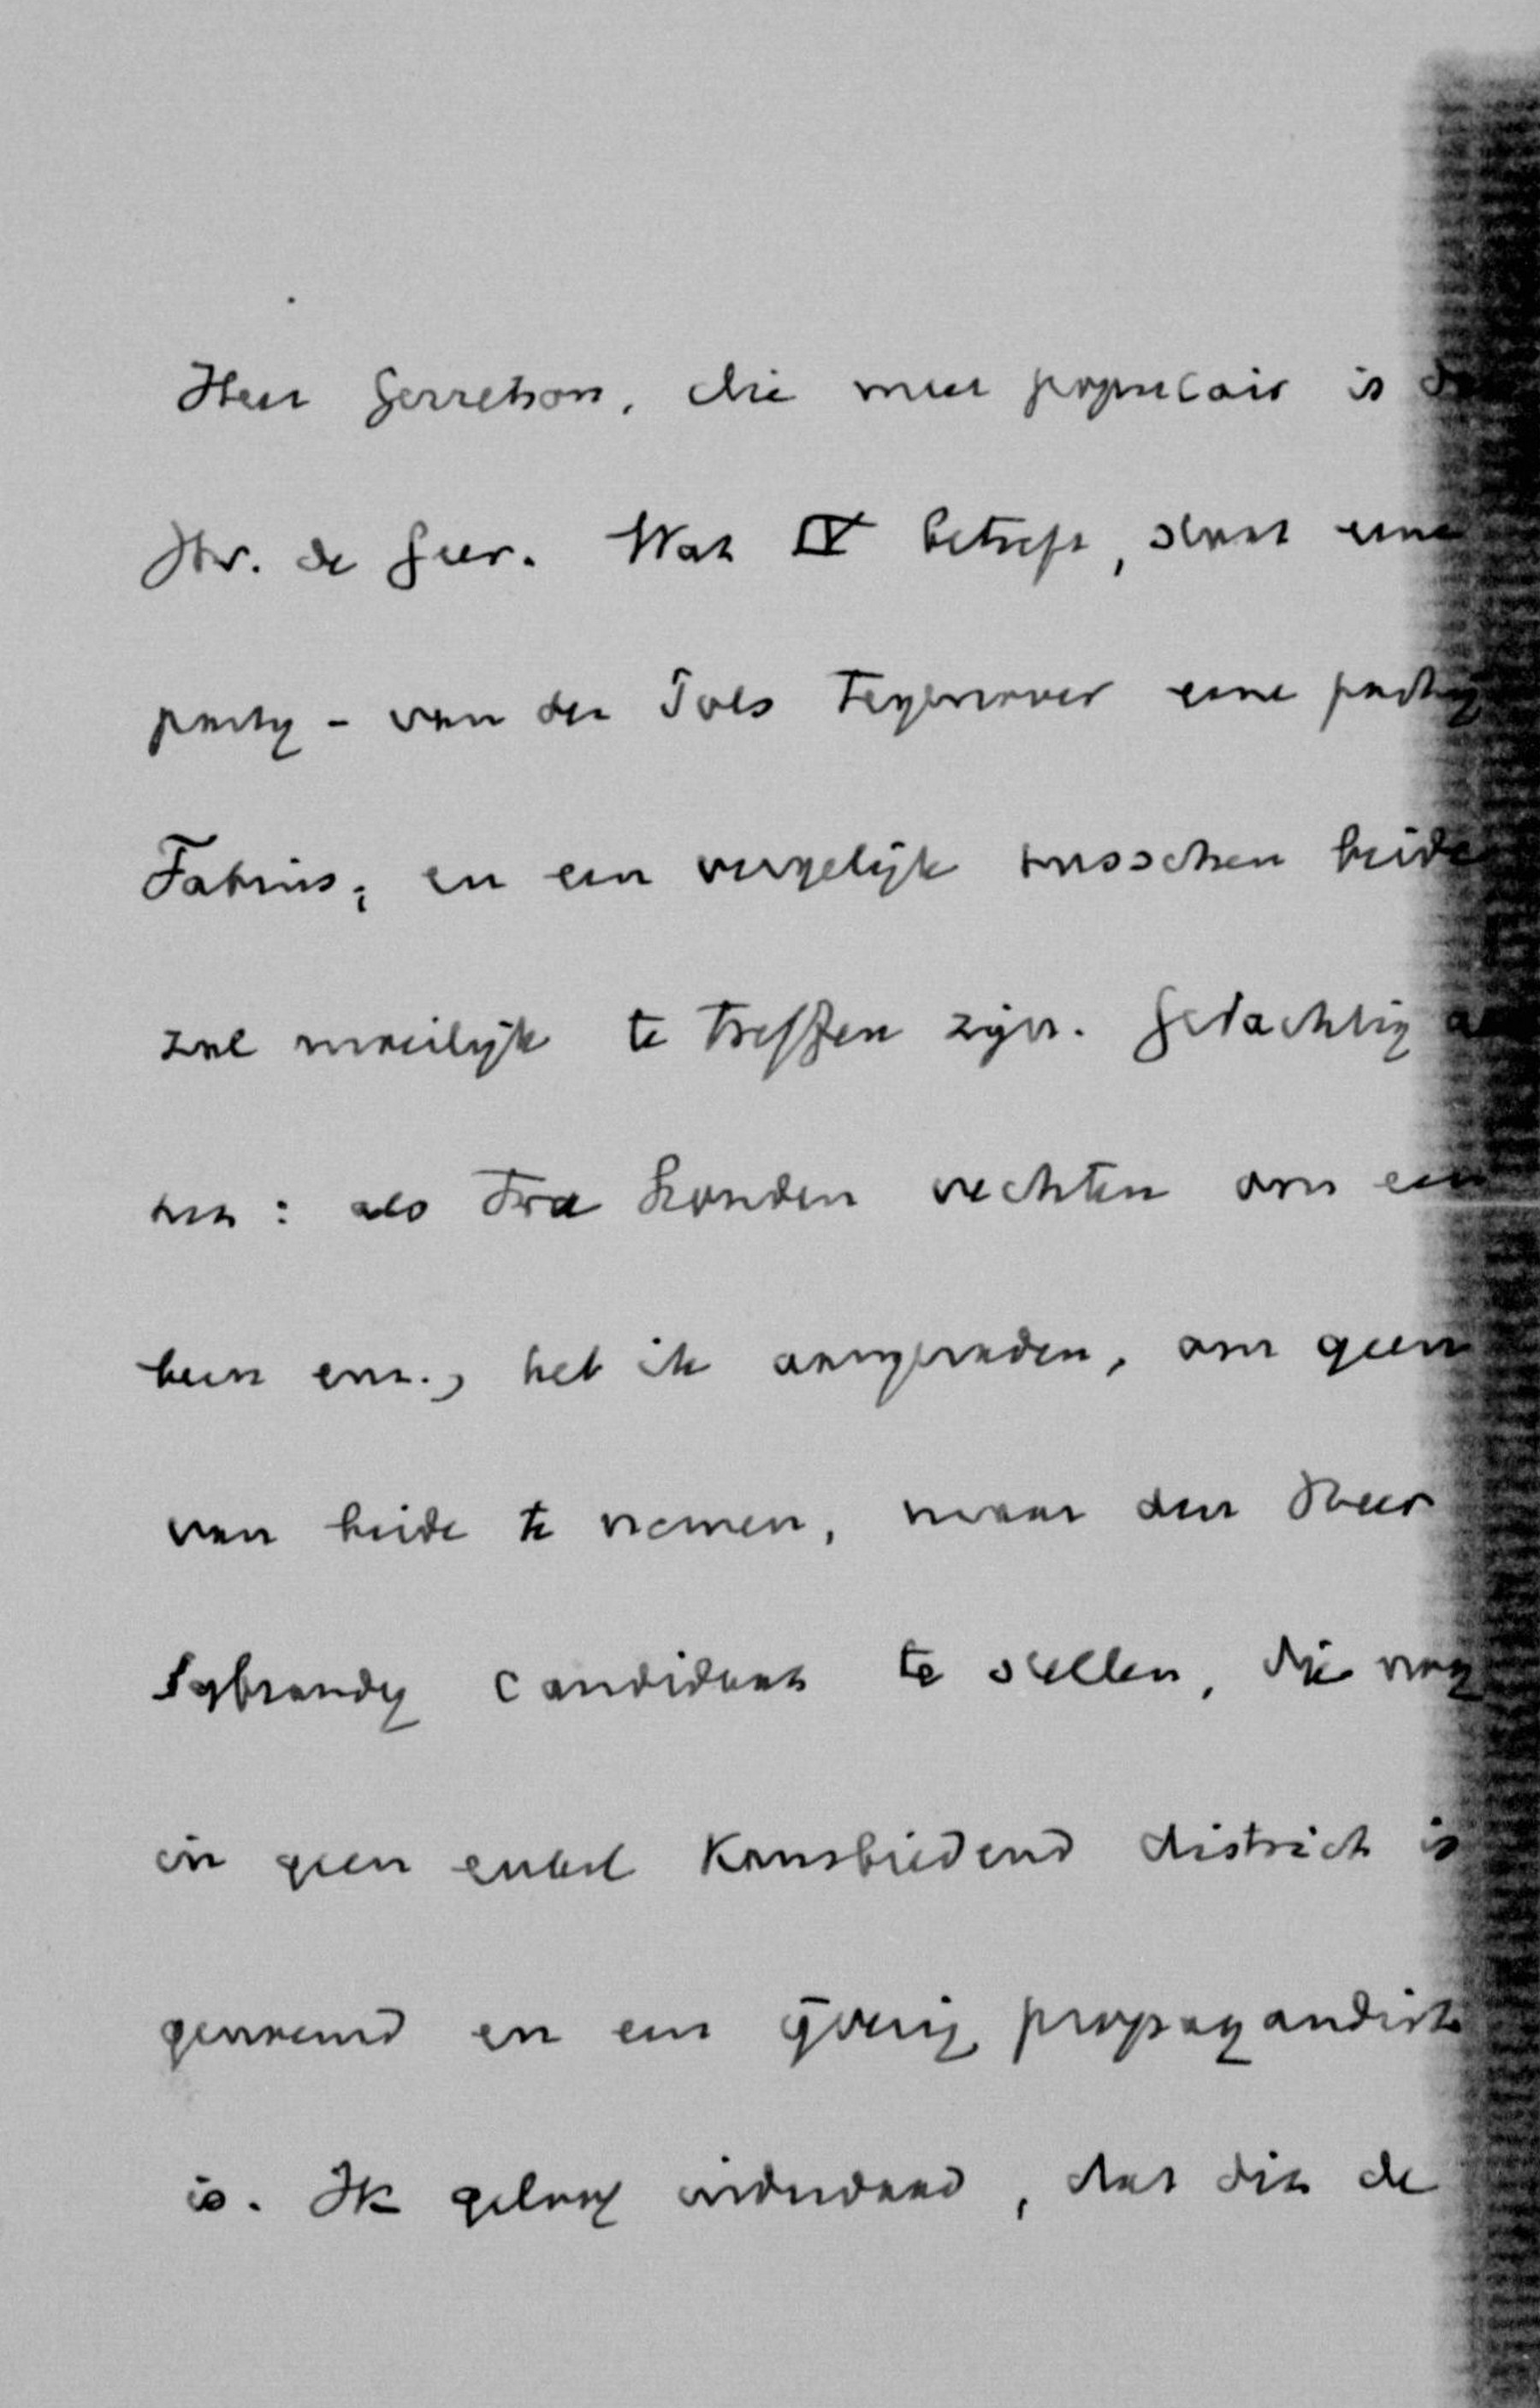 Heer Gerretson, die meer populair is dan
Jhr. de Geer. Wat IV betreft, staat eene
party - van der Does tegenover eene party
Fabius; en een vergelijk tusschen beide
zal moeilijk te treffen zijn. Gedachtig aan
het: als twee honden vechten om een
been enz., heb ik aangeraden, om geen
van beide te nemen, maar den Heer
Sybrandy candidaat te stellen, die nog
in geen enkel kansbiedend district is
genoemd en een ijverig propagandist
is. Ik geloof inderdaad, dat dit de